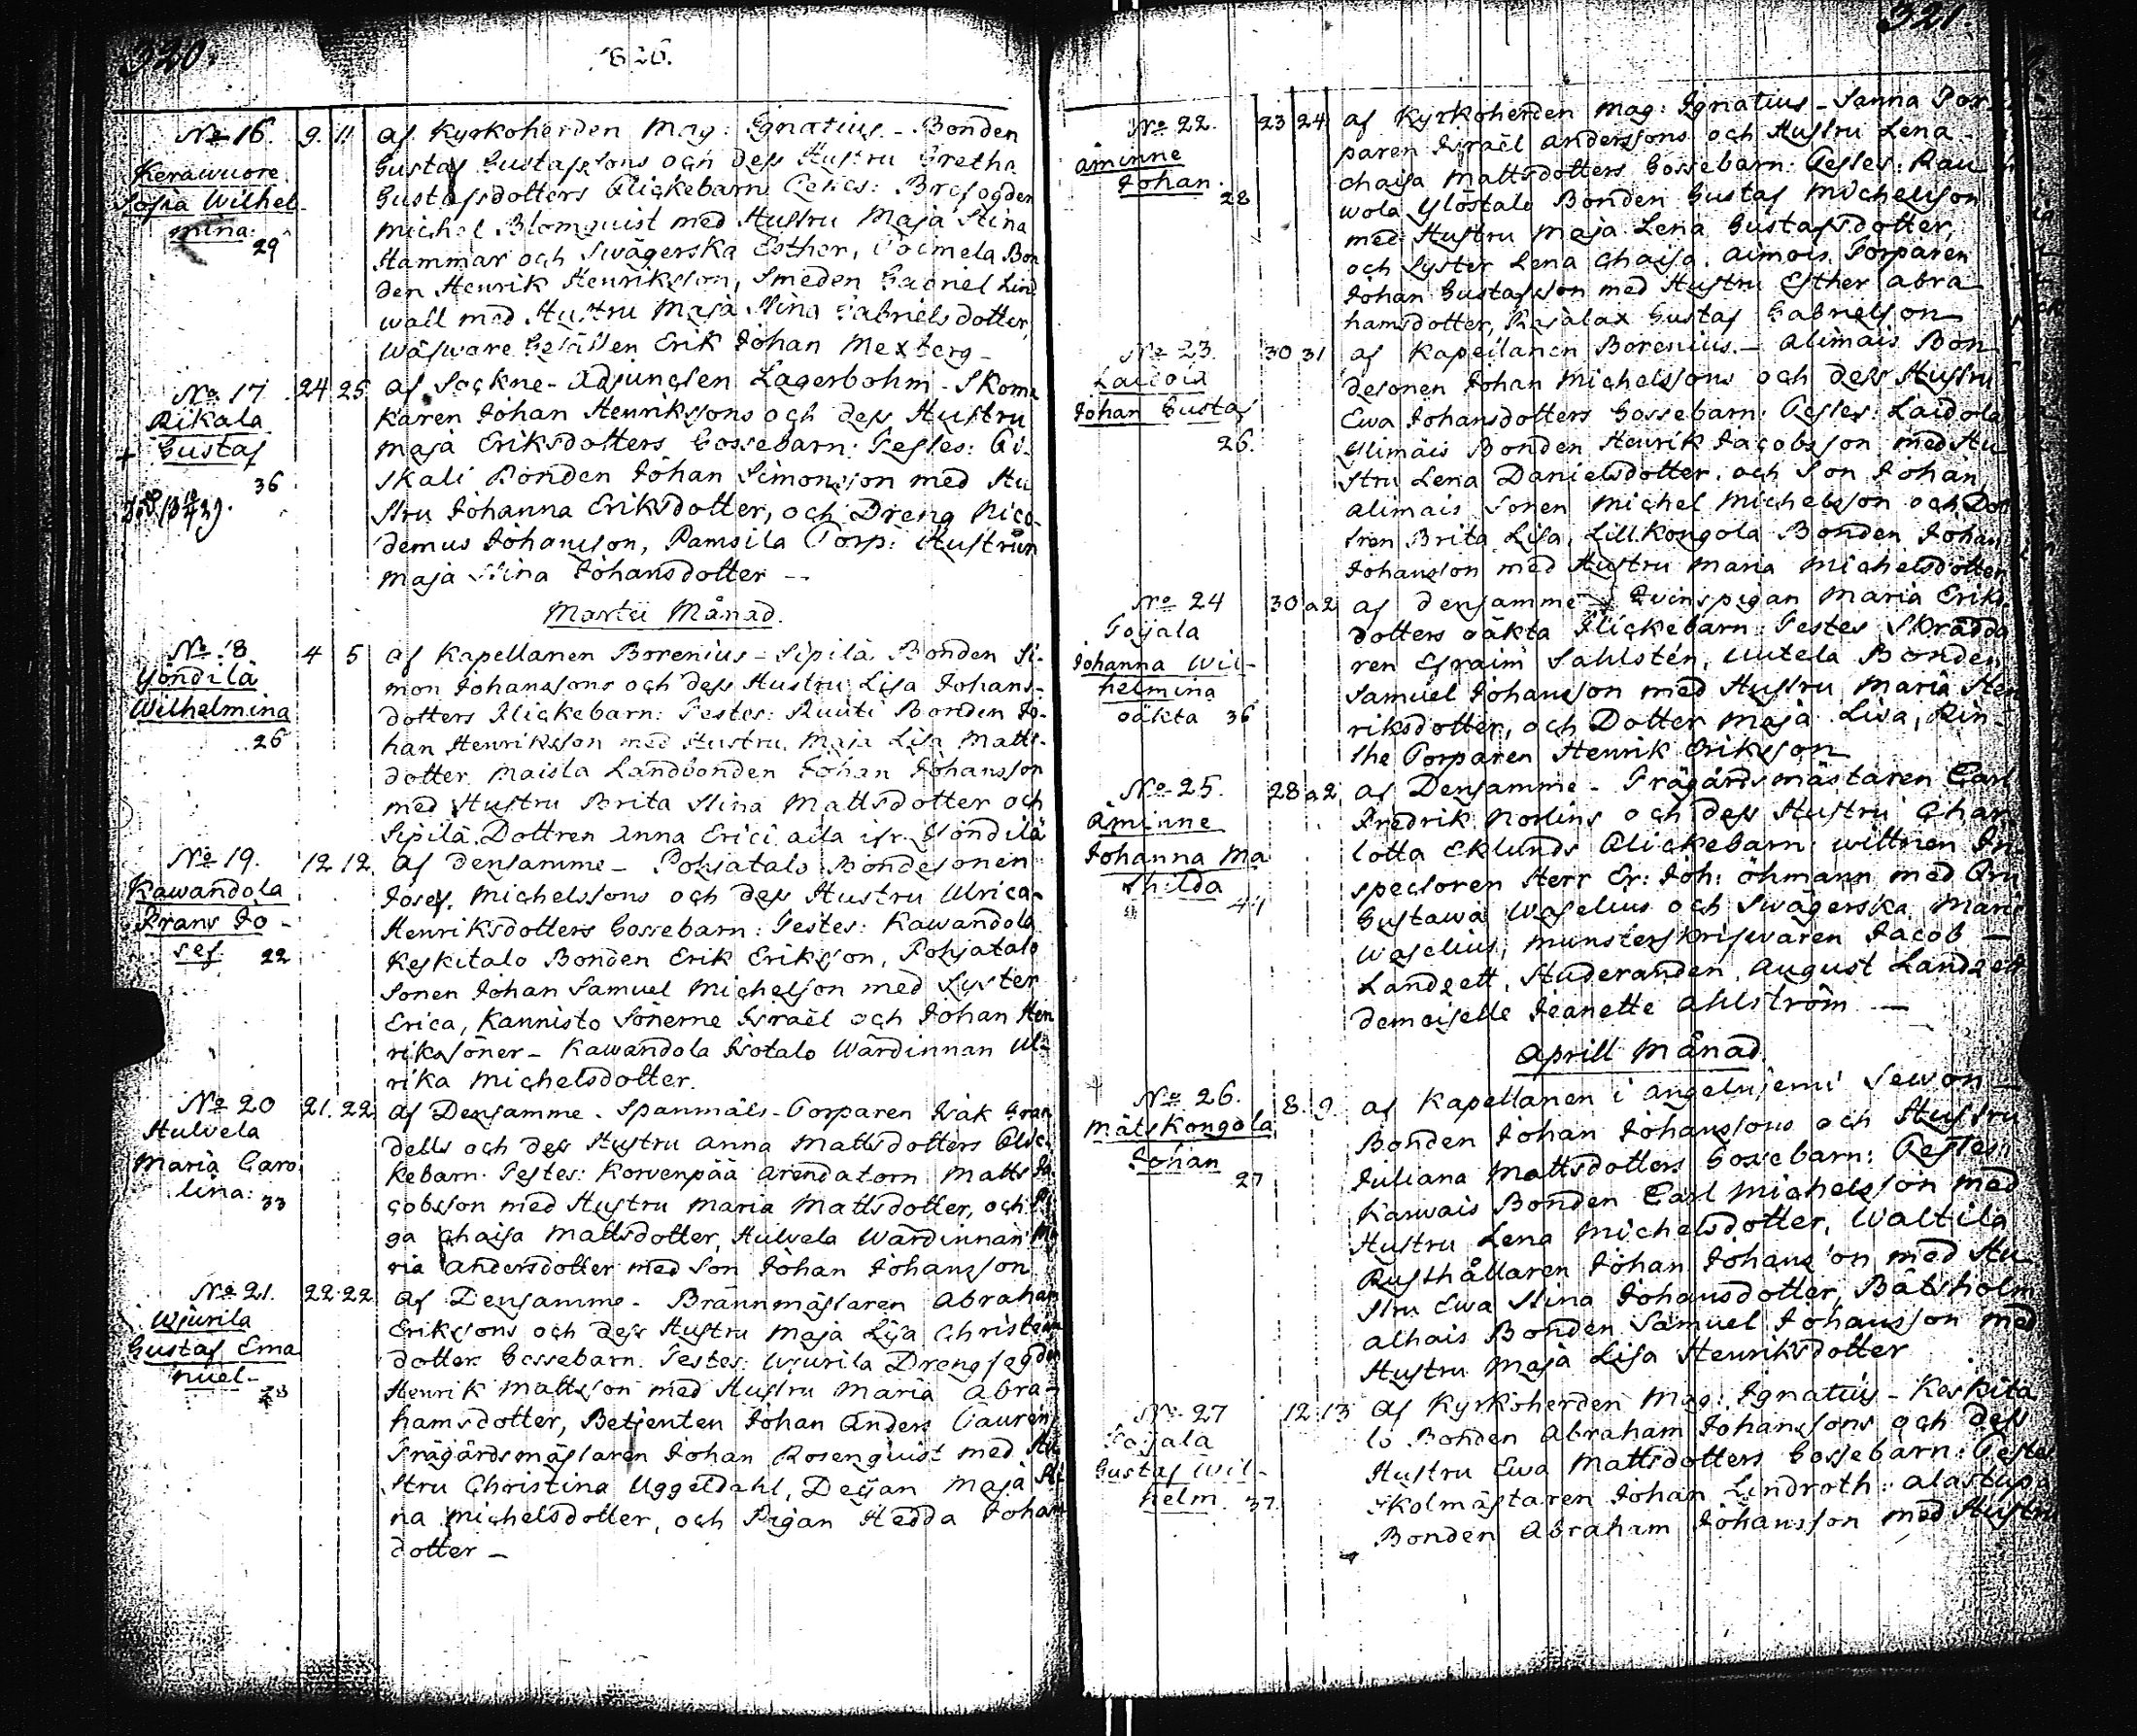 320.
1826.
No 16. 9. 11. af Kyrkoherden Mag: Ignatius - Bonden
Kerawuore Gustaf Gustafssons och dess Hustru Gretha
Sofia Wilhel- Gustafsdotters Flickebarn Testes: Brofogden
mina: Michel Blomquist med Hustru Maja Stina
29 Hammar och Swägerska Esther, Toimela Bon
den Henrik Henriksson, Smeden Gabriel Lind
wall med Hustru Maja Stina Gabriels dotter,
Gesällen Erik Johan Mexberg -
No 17 24 25 af Sockne-Adjuncten Lagerbohm - Skoma
Rikala karen Johan Henrikssons och dess Hustru
+ Gustaf Maja Eriksdotters Gossebarn: Testes:
36 skali Bonden Johan Simonsson med Hu
stru Johanna Eriksdotter, och Dreng Nico-
demus Johansson, Pamsila Torp: Hustrun
Maja Stina Johansdotter --
Martii Månad.
No 18 4 5 af Kapellanen Borenius - Sipilä Bonden Si-
Yöndilä mon Johanssons och dess Hustru Lisa Johans-
Wilhelmina dotters Flickebarn: Testes: Ruuti Bonden Jo-
26 han Henriksson med Hustru Maja Lisa Matts-
dotter Maisla Landbonden Johan Johansson
med Hustru Brita Stina Mattsdotter och
Sipilä Dottren Anna Erici Yöndilä
No 19. 12 12. af densamme - Pohjatalo Bondesonen
Kawandola Josef Michelssons och dess Hustru Ulrica
Frans Jo- Henriksdotters Gossebarn: Testes: Kawandola
sef 22 Keskitalo Bonden Erik Eriksson, Pohjatalo
Sonen Johan Samuel Michelson med Syster
Erica, Kannisto Sönerne Israël och Johan Hen
rikssöner - Kawandola Isotalo Wärdinnan Ul-
rika Michelsdotter.
No 20 21. 22 af Densamme - Spanmåls-Torparen Isak Gran
Hulvela dells och dess Hustru Anna Mattsdotters Flic-
Maria Caro kebarn. Testes: Korvenpää Arendatorn Matts Ja
lina: 33 cobsson med Hustru Maria Mattsdotter, och Pi
ga Chaisa Mattsdotter, Hulvela Wärdinnan Ma
ria Andersdotter med Son Johan Johansson
No 21. 22 22 af Densamme - Brännmästaren Abraham
Wiurila Erikssons och dess Hustru Maja Lisa Christens
Gustaf Ema dotters Gossebarn. Testes: Wiurila Drengfogden
nuel - Henrik Mattsson med Hustru Maria Abra-
28 hamsdotter, Betjenten Johan Anders Tauren,
Trägårdsmästaren Johan Rosenquist med Hu
stru Christina Uggeldahl, Dejan Maja Sti
na Michelsdotter, och Pigan Hedda Johans
dotter -
321.
No 22. 23 24 af Kyrkoherden Mag: Ignatius - Sanna Tor-
Åminne paren Israël Anderssons och Hustru Lena
Johan. Chaisa Mattsdotters Gossebarn: Testes: Rau
28 wola Ylöstalo Bonden Gustaf Michelsson
med Hustru Maja Lena Gustafsdotter,
och Syster Lena Chaisa, Aimois Torparen
Johan Gustafsson med Hustru Esther Abra
hamsdotter, Gustaf Gabrielsson
No 23. 30 31 af Kapellanen Borenius. - Alimais Bon
desonen Johan Michelssons och dess Hustru
Johan Gustaf Ewa Johansdotters Gossebarn: Testes: Laidola
26. Ylimäis Bonden Henrik Jacobsson med Hu
stru Lena Danielsdotter och Son Johan
Alimais Sonen Michel Michelsson och Dot
tren Brita Lisa, Lillkongola Bonden Johan
Johansson med Hustru Maria Michelsdotter
No 24 30 a2 af densamme - Qvinspigan Maria Eriks
Toijala dotters oäkta Flickebarn: Testes Skrädda
Johanna Wil- ren Efraim Sahlstén, Uutela Bonden
helmina Samuel Johansson med Hustru Maria Hen
oäkta 36 riksdotter, och Dotter Maja Lisa,
Torparen Henrik Eriksson
No 25. 28 a2 af Densamme - Trägårdsmästaren Carl
Åminne Fredrik Norlins och dess Hustru Char
Johanna Ma lotta Eklunds Flickebarn: wittnen In
thilda spectoren Herr Er: Joh: Öhmann med Fru
41 Gustawa Waselius och Swägerska Maria
Waselius, Munsterskrifwaren Jacob -
Landzett, Studeranden August Landzett
demoiselle Jeanette Ahlström -
Aprill Månad.
No 26. 8 9 af Kapellanen i Angelniemi Sewon -
Mätskongola Bonden Johan Johanssons och Hustru
Johan Juliana Mattsdotters Gossebarn: Testes:
27 Karwais Bonden Carl Michelsson med
Hustru Lena Michelsdotter, Waltila
Rusthållaren Johan Johansson med Hu
stru Ewa Stina Johansdotter, Båtsholm
Alhais Bonden Samuel Johansson med
Hustru Maja Lisa Henriksdotter
No 27 12 13 af Kyrkoherden Mag: Ignatius - Keskita
Toijala lo Bonden Abraham Johanssons och dess
Gustaf Wil- Hustru Ewa Mattsdotters Gossebarn: Testes
helm. 37. Skolmästaren Johan Lindroth: Alastupa
Bonden Abraham Johansson med Hustru